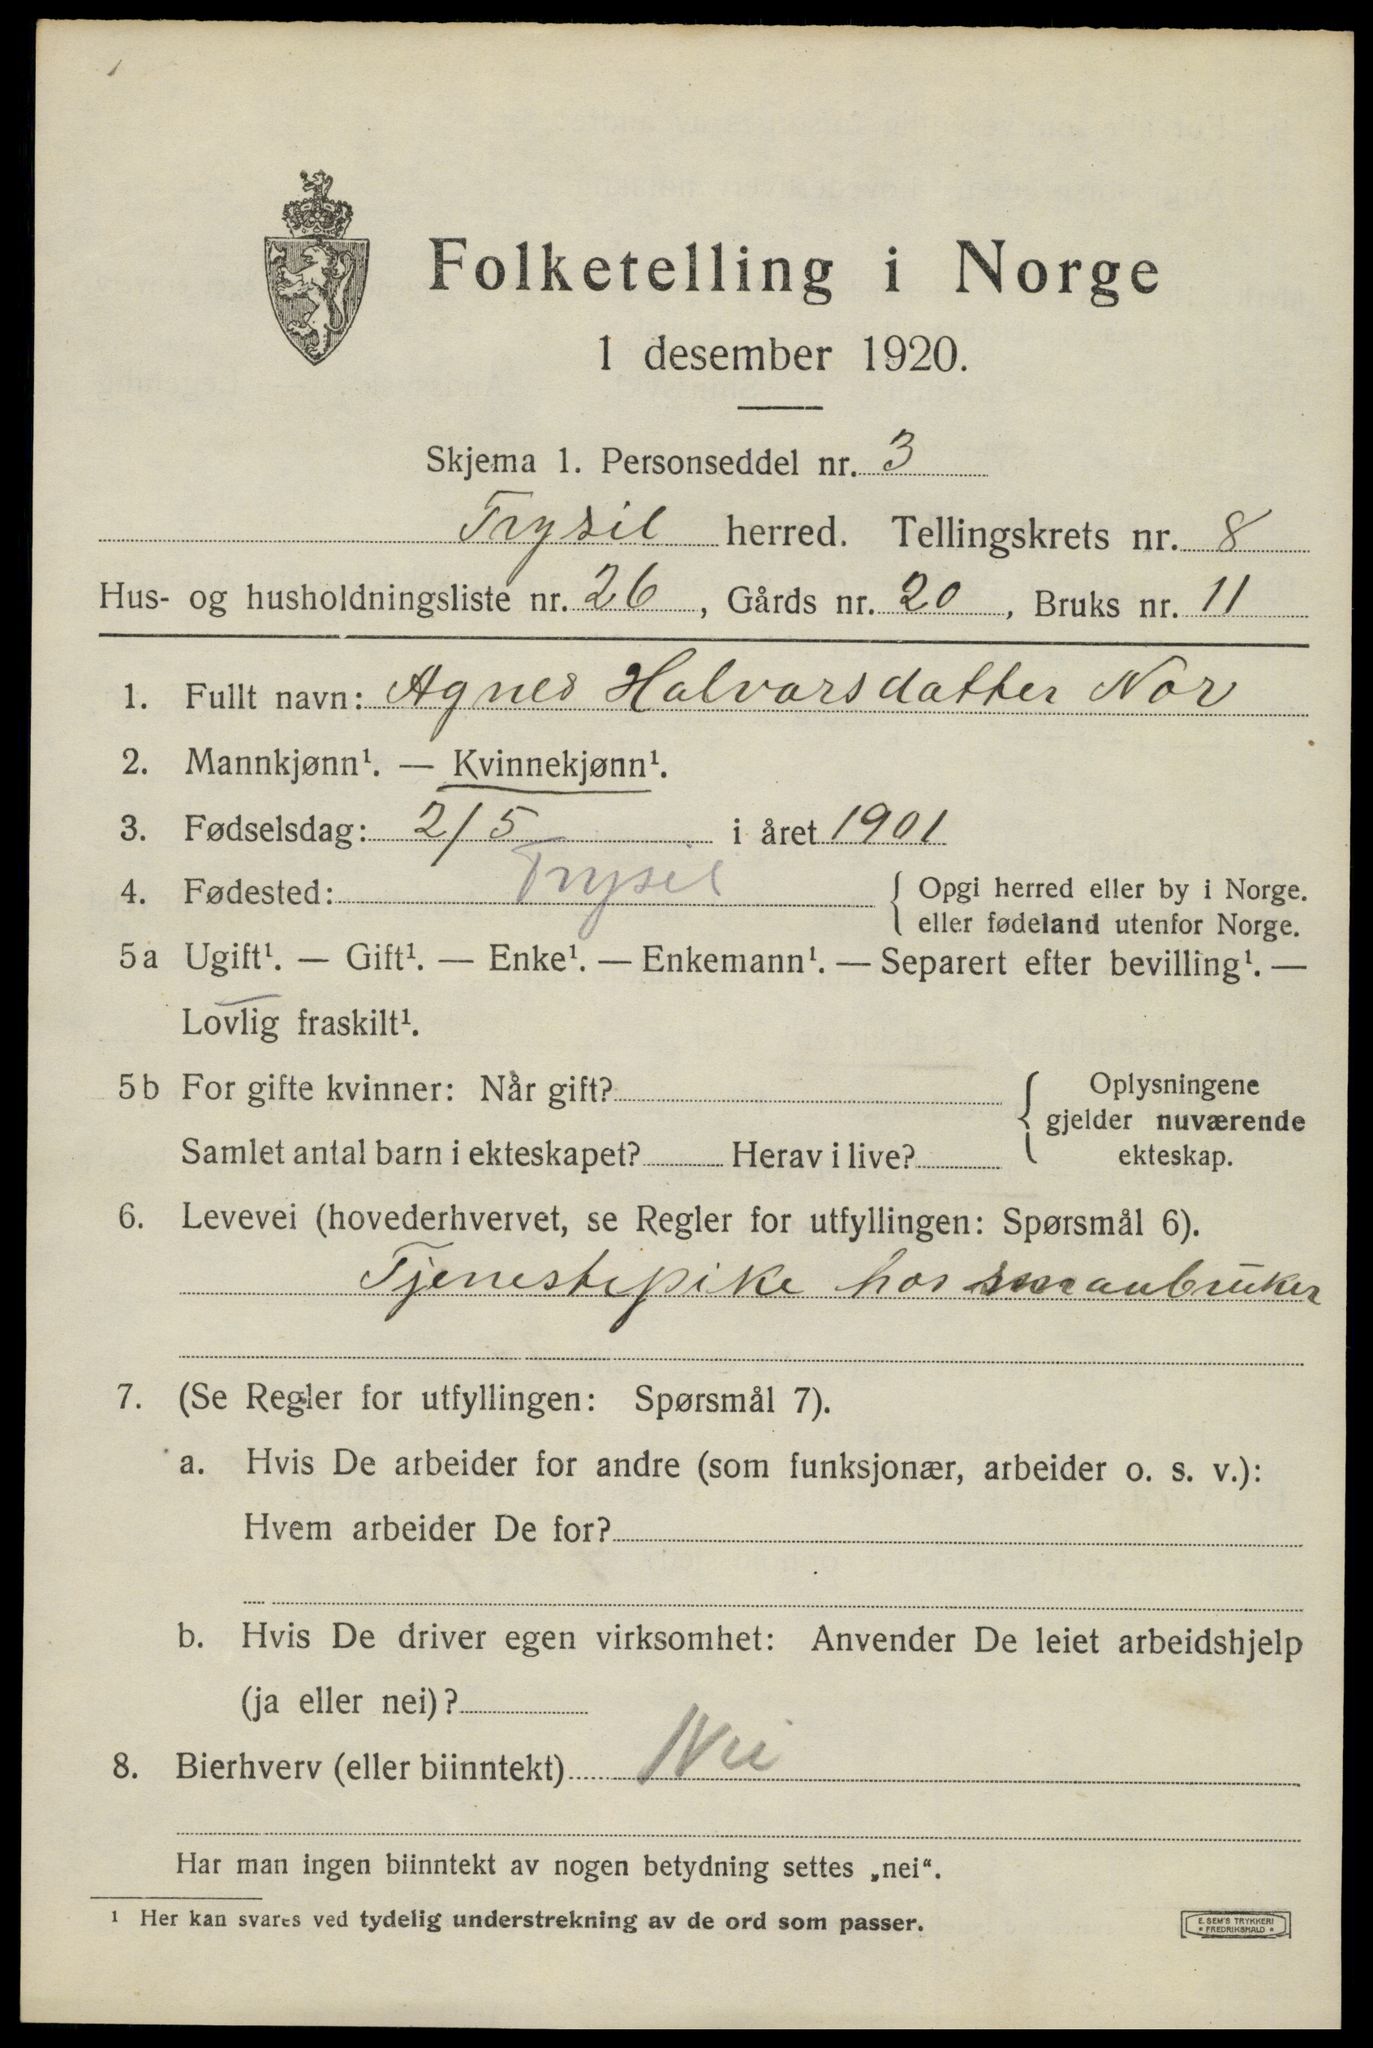 Folketelling i Norge
1 desember 1920.
Skjema 1. Personseddel nr. 3
Trysil herred. Tellingskrets nr. 8
Hus- og husholdningsliste nr. 26, Gårds nr. 20, Bruks nr. 11
1. Fullt navn: Agnes Halvorsdatter Nor
2. Mannkjønn¹. — Kvinnekjønn¹.
3. Fødselsdag: 2/5 i året 1901
4. Fødested: Trysil { Opgi herred eller by i Norge.
eller fødeland utenfor Norge.
5a Ugift¹. — Gift¹. — Enke¹. — Enkemann¹. — Separert efter bevilling¹. —
Lovlig fraskilt¹.
5b For gifte kvinner: Når gift?
Samlet antal barn i ekteskapet? Herav i live?
{ Oplysningene
gjelder nuværende
ekteskap.
6. Levevei (hovederhvervet, se Regler for utfyllingen: Spørsmål 6).
Tjenestepike hos smaabruker
7. (Se Regler for utfyllingen: Spørsmål 7).
a. Hvis De arbeider for andre (som funksjonær, arbeider o. s. v.):
Hvem arbeider De for?
b. Hvis De driver egen virksomhet: Anvender De leiet arbeidshjelp
(ja eller nei)?
8. Bierhverv (eller biinntekt) Nei
Har man ingen biinntekt av nogen betydning settes „nei“.
¹ Her kan svares ved tydelig understrekning av de ord som passer.
E. SEM'S TRYKKERI
* FREDRIKSHALD *